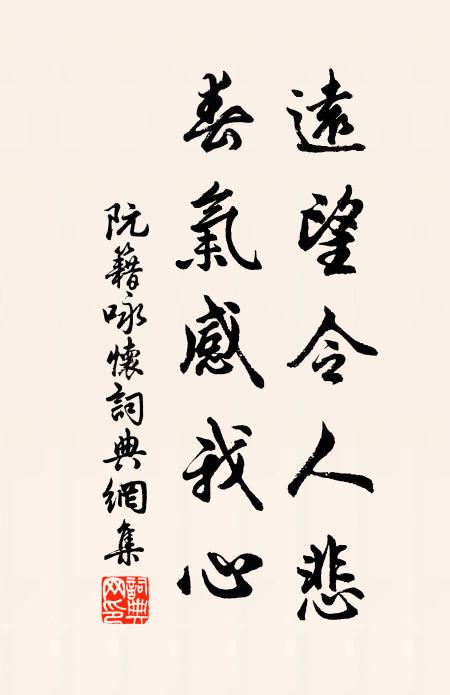 遠望令人悲
春氣感我心
阮籍咏懷詞典網集
詞典網印